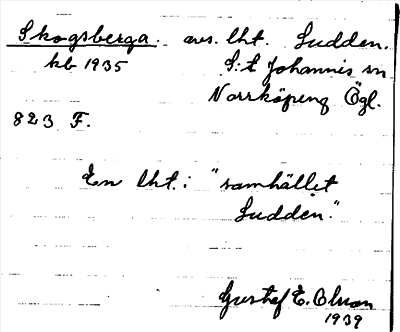 Skogsberga. avs. lht. Sudden.
kb 1935 S:t Johannis sn
Norrköping Ögl.
823 F.
En lht. i "samhället
Sudden."
Gustaf E. Olsson
1939